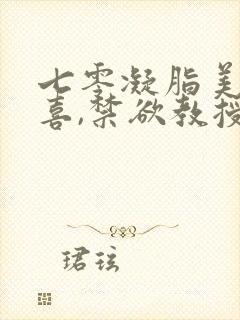 七零凝脂美
喜,禁欲教授
珺玹